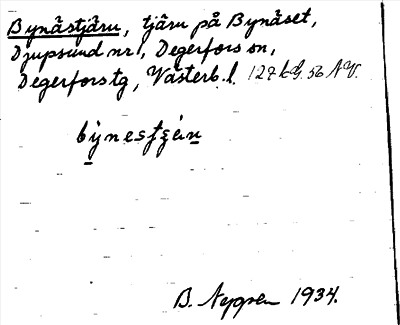 Bynästjärn, tjärn på Bynäset,
Djupsund nr 1, Degerfors sn,
Degerfors tg, Västerb. l. 127 b G. 56 N.V.
B. 1934.